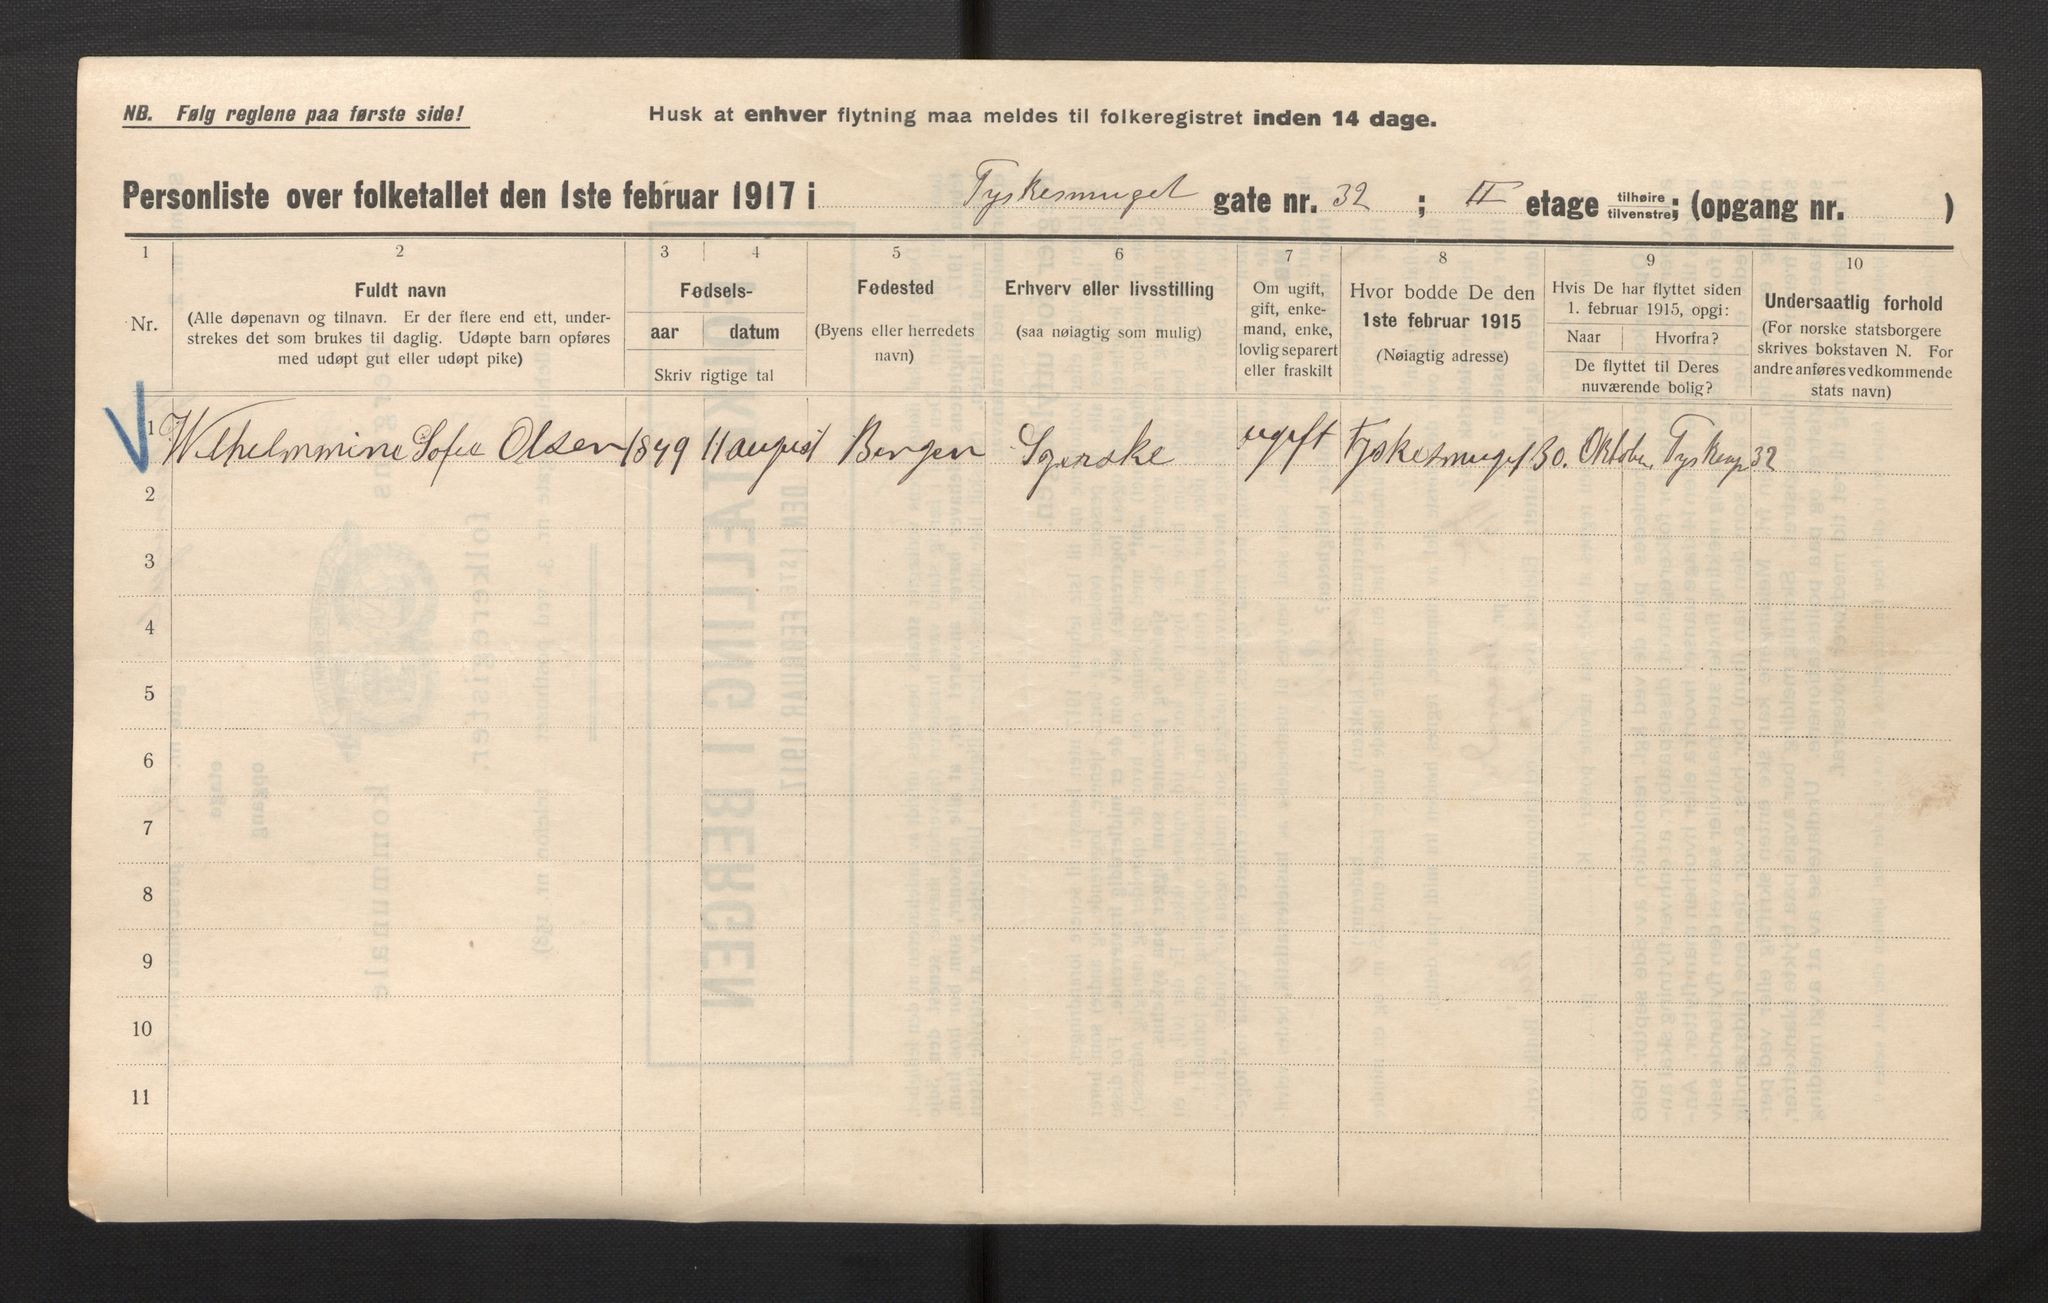 NB. Følg reglene paa første side!
Husk at enhver flytning maa meldes til folkeregistret inden 14 dage.
Personliste over folketallet den 1ste februar 1917 i Tyskesmuget gate nr. 32 ; II etage tilhøire tilvenstre; (opgang nr. )
1 2 3 4 5 6 7 8 9 10
Nr.
Fuldt navn
(Alle døpenavn og tilnavn. Er der flere end ett, under-
strekes det som brukes til daglig. Udøpte barn opføres
med udøpt gut eller udøpt pike)
Fødsels-
aar datum
Skriv rigtige tal
Fødested
(Byens eller herredets
navn)
Erhverv eller livsstilling
(saa nøiagtig som mulig)
Om ugift,
gift, enke-
mand, enke,
lovlig separert
eller fraskilt
Hvor bodde De den
1ste februar 1915
(Nøiagtig adresse)
Hvis De har flyttet siden
1. februar 1915, opgi:
Naar Hvorfra?
De flyttet til Deres
nuværende bolig?
Undersaatlig forhold
(For norske statsborgere
skrives bokstaven N. For
andre anføres vedkommende
stats navn)
1 Wilhelmmine Sofie Olsen 1849 11 august Bergen Syerske ugift Tyskesmuget 30. Oktober 32
2
3
4
5
6
7
8
9
10
11